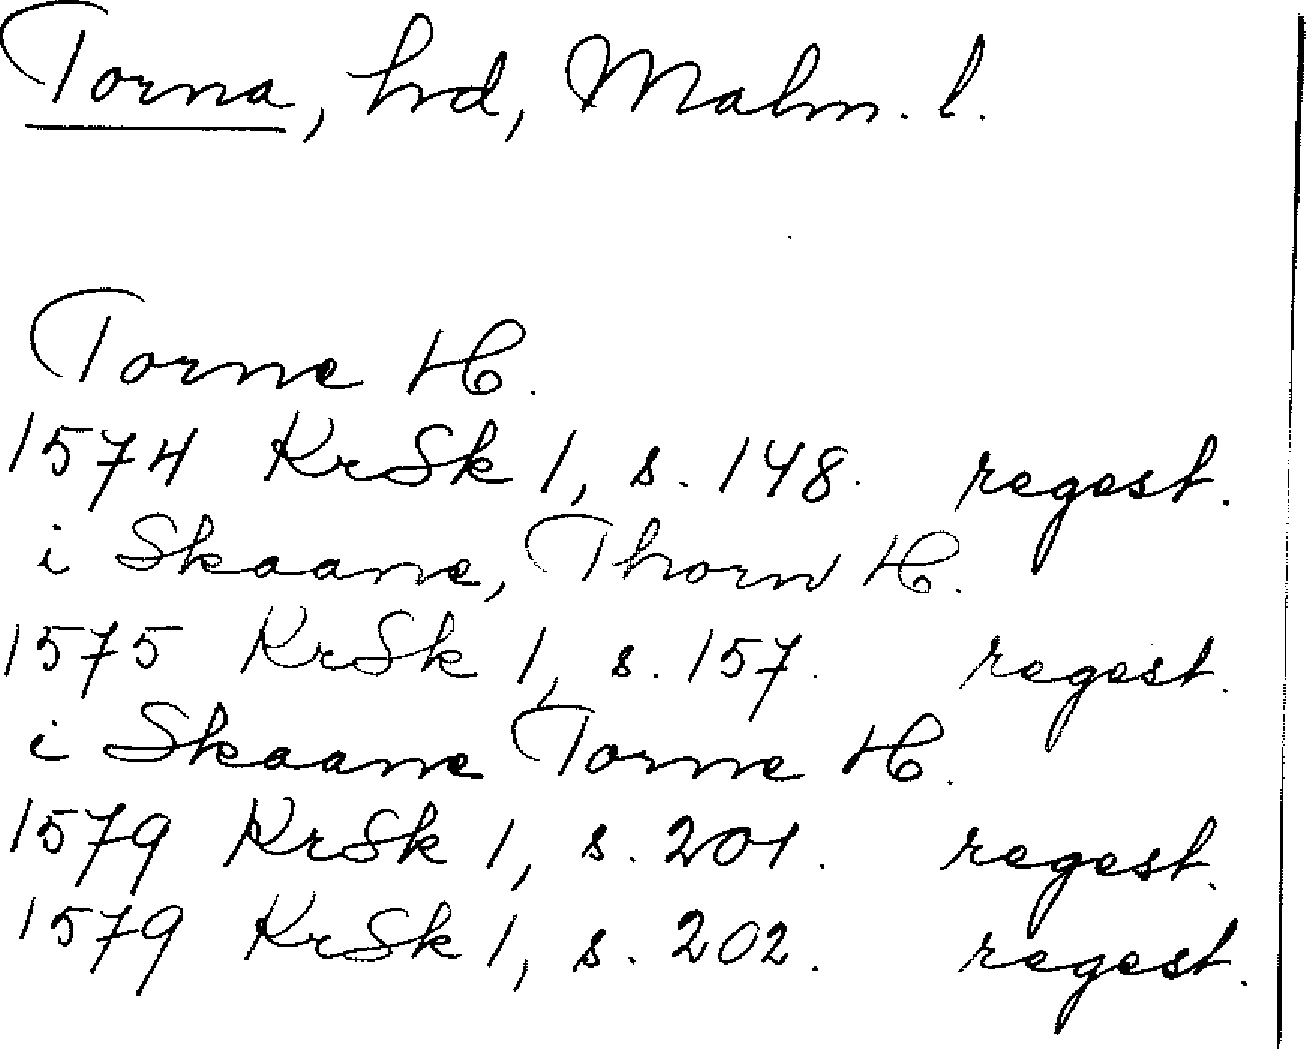 Torna, hrd, Malm. l.
Torne H.
1574 KrSk 1, s. 148. regest.
i Skaane, Thorn H.
1575 KrSk 1, s. 157. regest.
i Skaane Torne H.
1579 KrSk 1, s. 201. regest.
1579 KrSk 1, s. 202. regest.